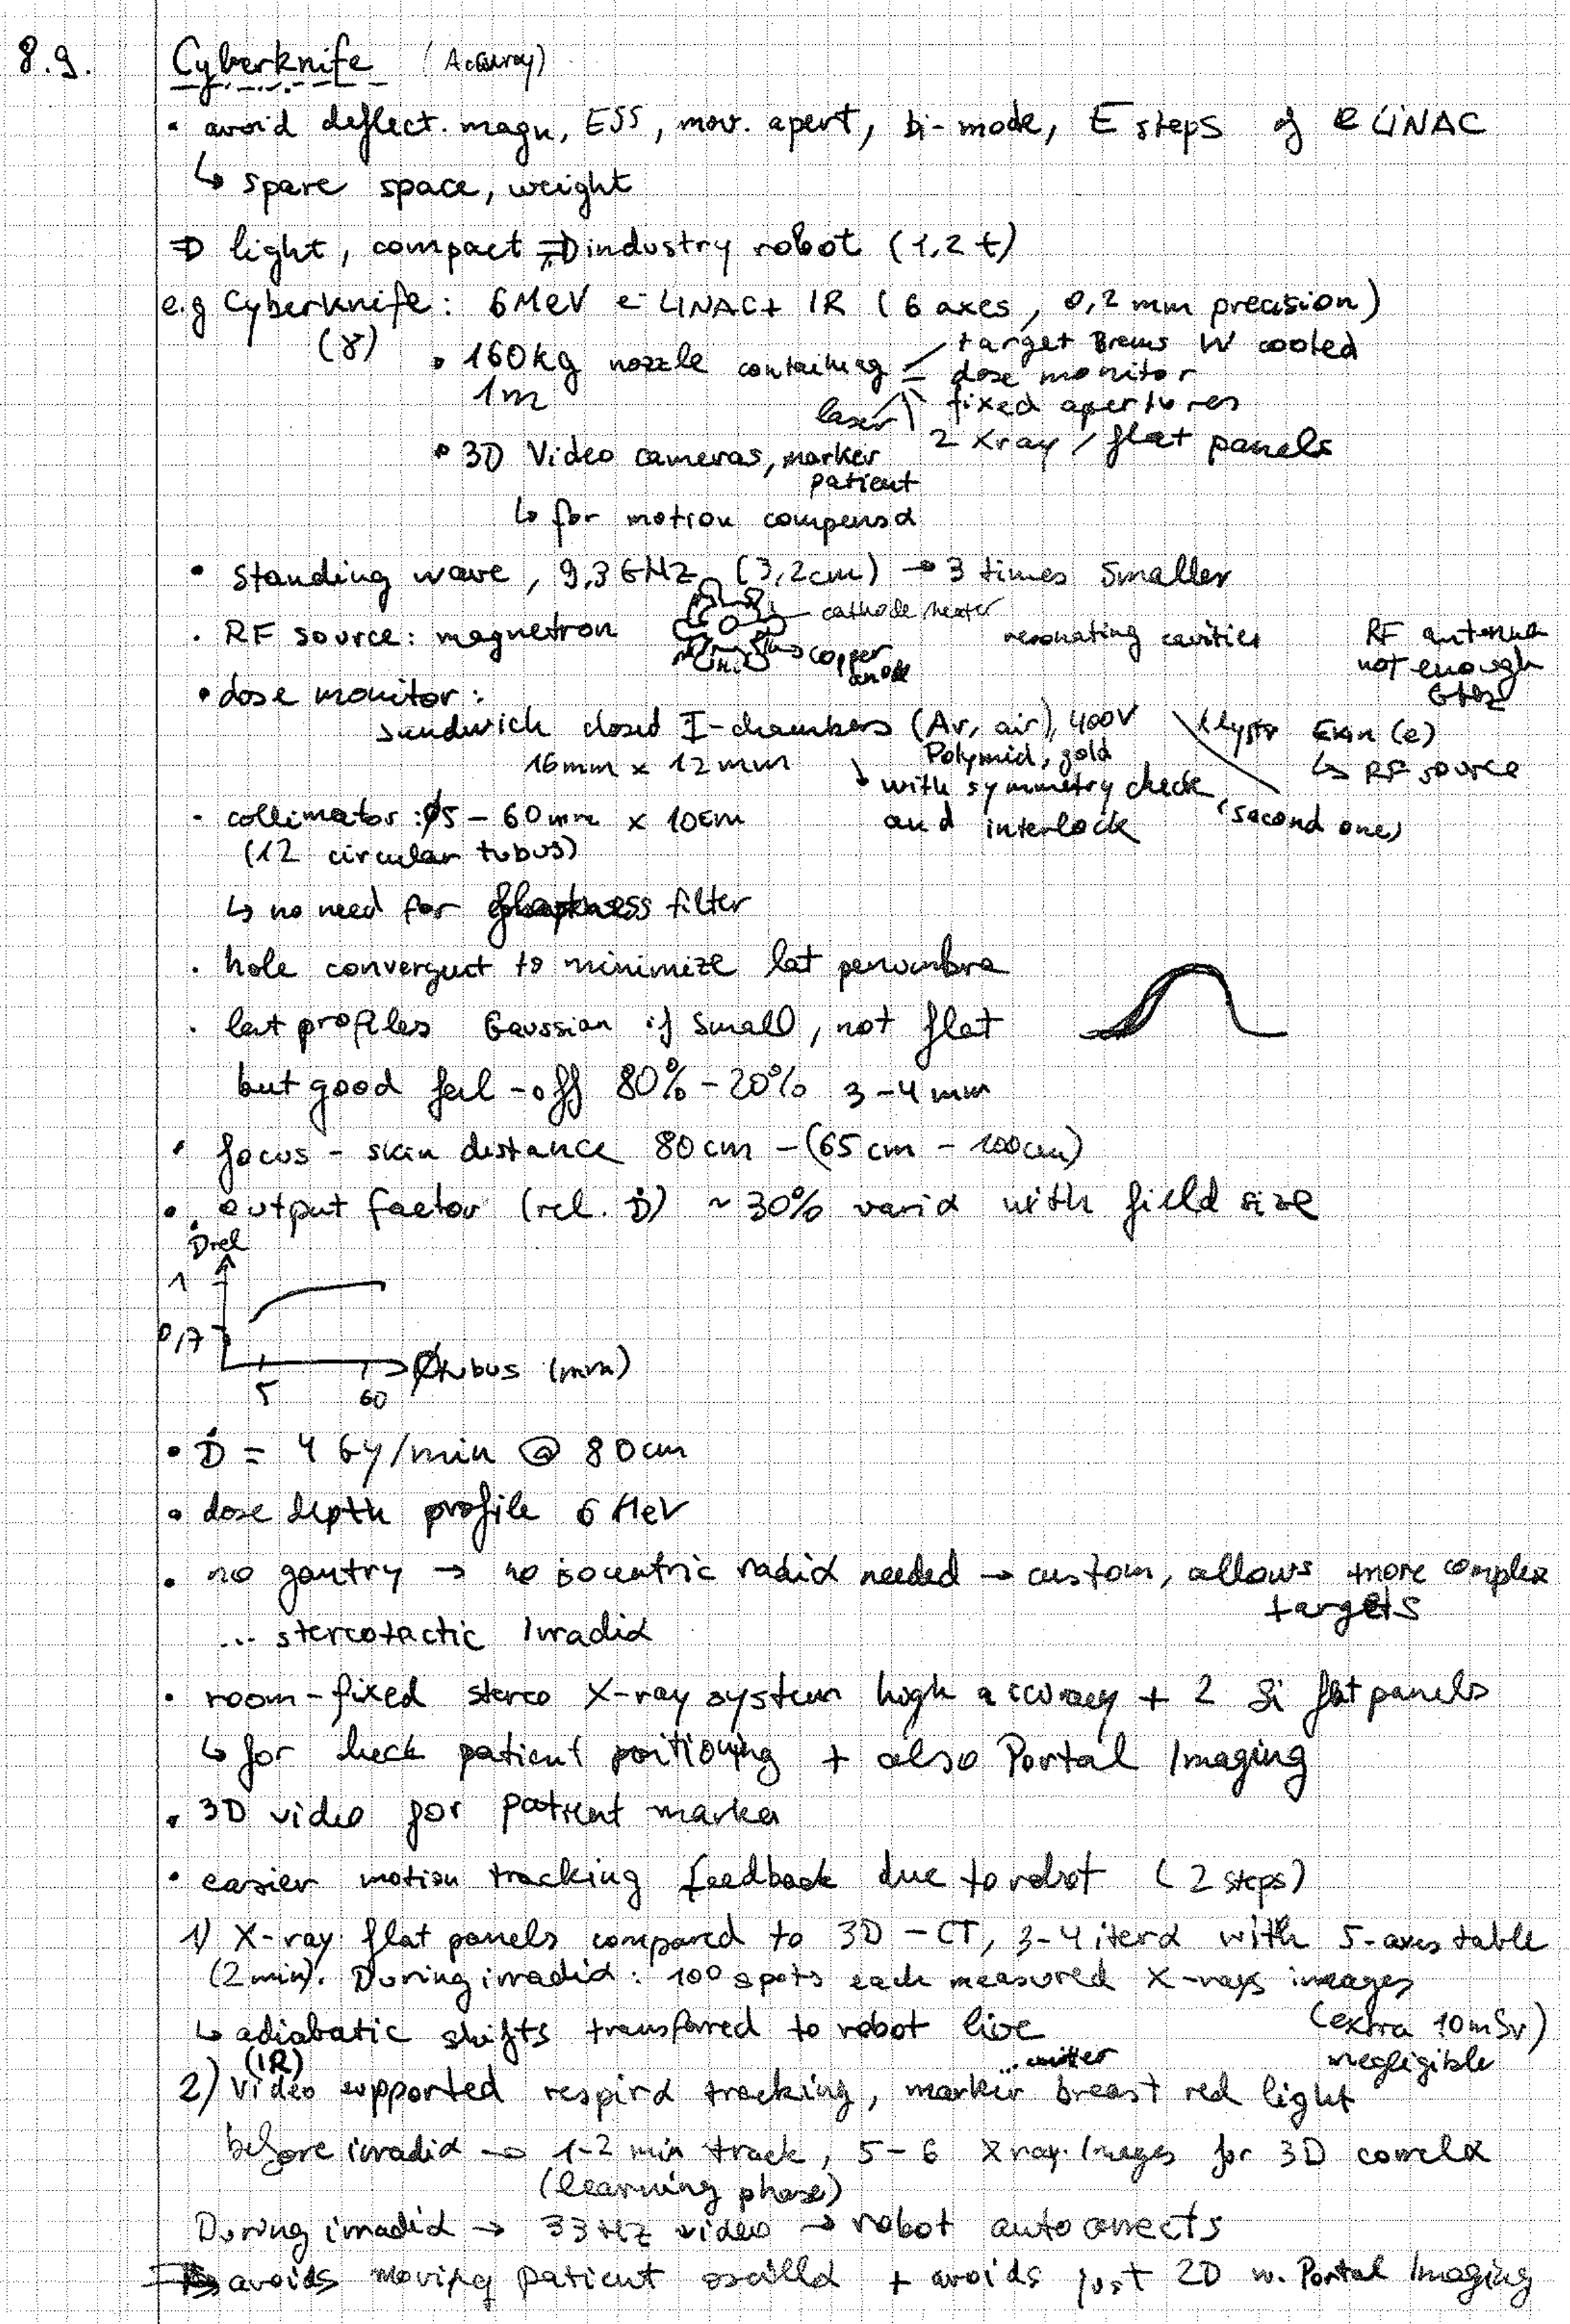 8.9. Cyberknife (Accuray)
• avoid deflect. magn, ESS, mov. apert, bi-mode, E steps of e LINAC
↳ spare space, weight
⇒ light, compact ⇒ industry robot (1,2 t)
e.g Cyberknife: 6 MeV e⁻ LINAC + IR (6 axes, 0,2 mm precision)
(γ)
target Brems W cooled
• 160kg nozzle containing dose monitor
1m
laser fixed apertures
2 Xray / flat panels
• 3D Video cameras, marker
patient
↳ for motion compensα
• standing wave, 9,3 GHz (3,2cm) → 3 times smaller
cathode heater
• RF source: magnetron resonating cavities RF antenna
→ copper not enough
anode GHz
• dose monitor:
sandwich closed I-chambers (Ar, air), 400V Klystr Ekin (e)
16mm x 12mm Polymid, gold ↳ RF source
↳ with symmetry check
• collimator: Ø5 - 60mm x 10cm and interlock (second one)
(12 circular tubus)
↳ no need for filter
• hole convergent to minimize lat penumbra
• lat profiles Gaussian if small, not flat
but good fal-off 80% - 20% 3-4 mm
• focus - skin distance 80cm - (65cm - 100cm)
• output factor (rel. Ḋ) ~30% variα with field size
Ḋrel
1
0,7
Øtubus (mm)
5 60
• Ḋ = 4 Gy/min @ 80cm
• dose depth profile 6 MeV
• no gantry → no isocentric radiα needed → custom, allows more complex
targets
... stereotactic Irradiα
• room-fixed stereo X-ray system high accuracy + 2 Si flat panels
↳ for check patient positioning + also Portal Imaging
• 3D video for patient marker
• easier motion tracking feedback due to robot (2 steps)
1) X-ray flat panels compared to 3D-CT, 3-4 iterα with 5-axes table
(2min). During irradiα: 100 spots each measured X-rays images
↳ adiabatic shifts transferred to robot live (extra 10mSv)
negligible
(IR) ... emitter
2) Video supported respirα tracking, marker breast red light
before irradiα → 1-2 min track, 5-6 Xray Images for 3D correlα
(learning phase)
During irradiα → 33Hz video → robot autocorrects
avoids moving patient oscillα + avoids just 2D w. Portal Imaging